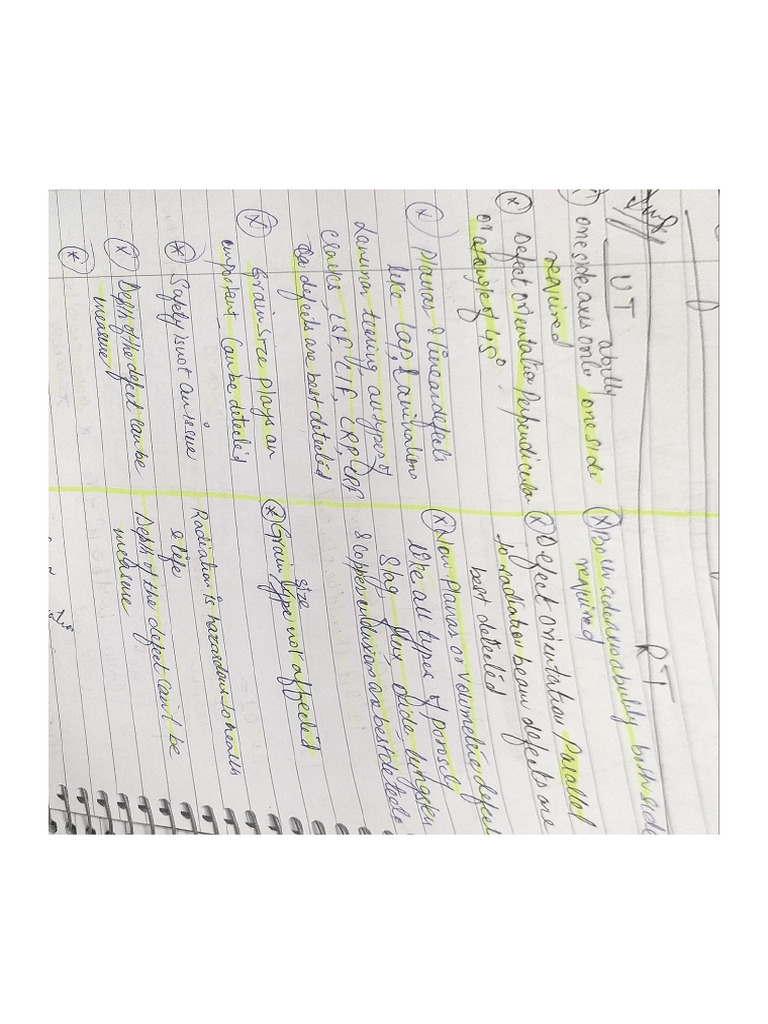 UT
one side axis only one side
ability
required
Defect orientation perpendicular
or a angle of 45°
Planar & linear defects
like lap, Lamination
Laminar tearing all types of
cracks, LSF, LIF, CRP, ERP
Ea defects are best detected
Grain Size plays an
important, can be detected
Safety is not an issue
Depth of the defect can be
measure
RT
Both side axis ability both side
required
Defect orientation Parallel
to radiation beam defects are
best detected
Non-Planar or volumetric defect
like all types of porosity
Slag, flux, oxide, tungsten
& copper inclusions are best detecte
Grain size type not affected
Radiation is hazardous to health
& life
Depth of the defect can't be
measure